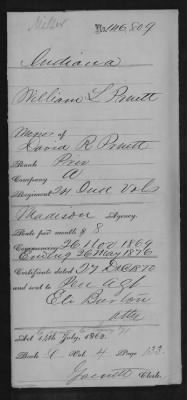 No. 146,809
Indiana
William L Pruett
Minor of
David R Pruett
Rank Priv
Company A
Regiment 24 Ind Vols
Madison Agency.
Rate per month $ 8
Commencing 26 Nov 1869
Ending 26 May 1876
Certificate dated 27 Dec 1870
and sent to Pen agt
Eli
atty
Act 14th July, 1862.
Book C Vol. 4 Page 132
Clerk.